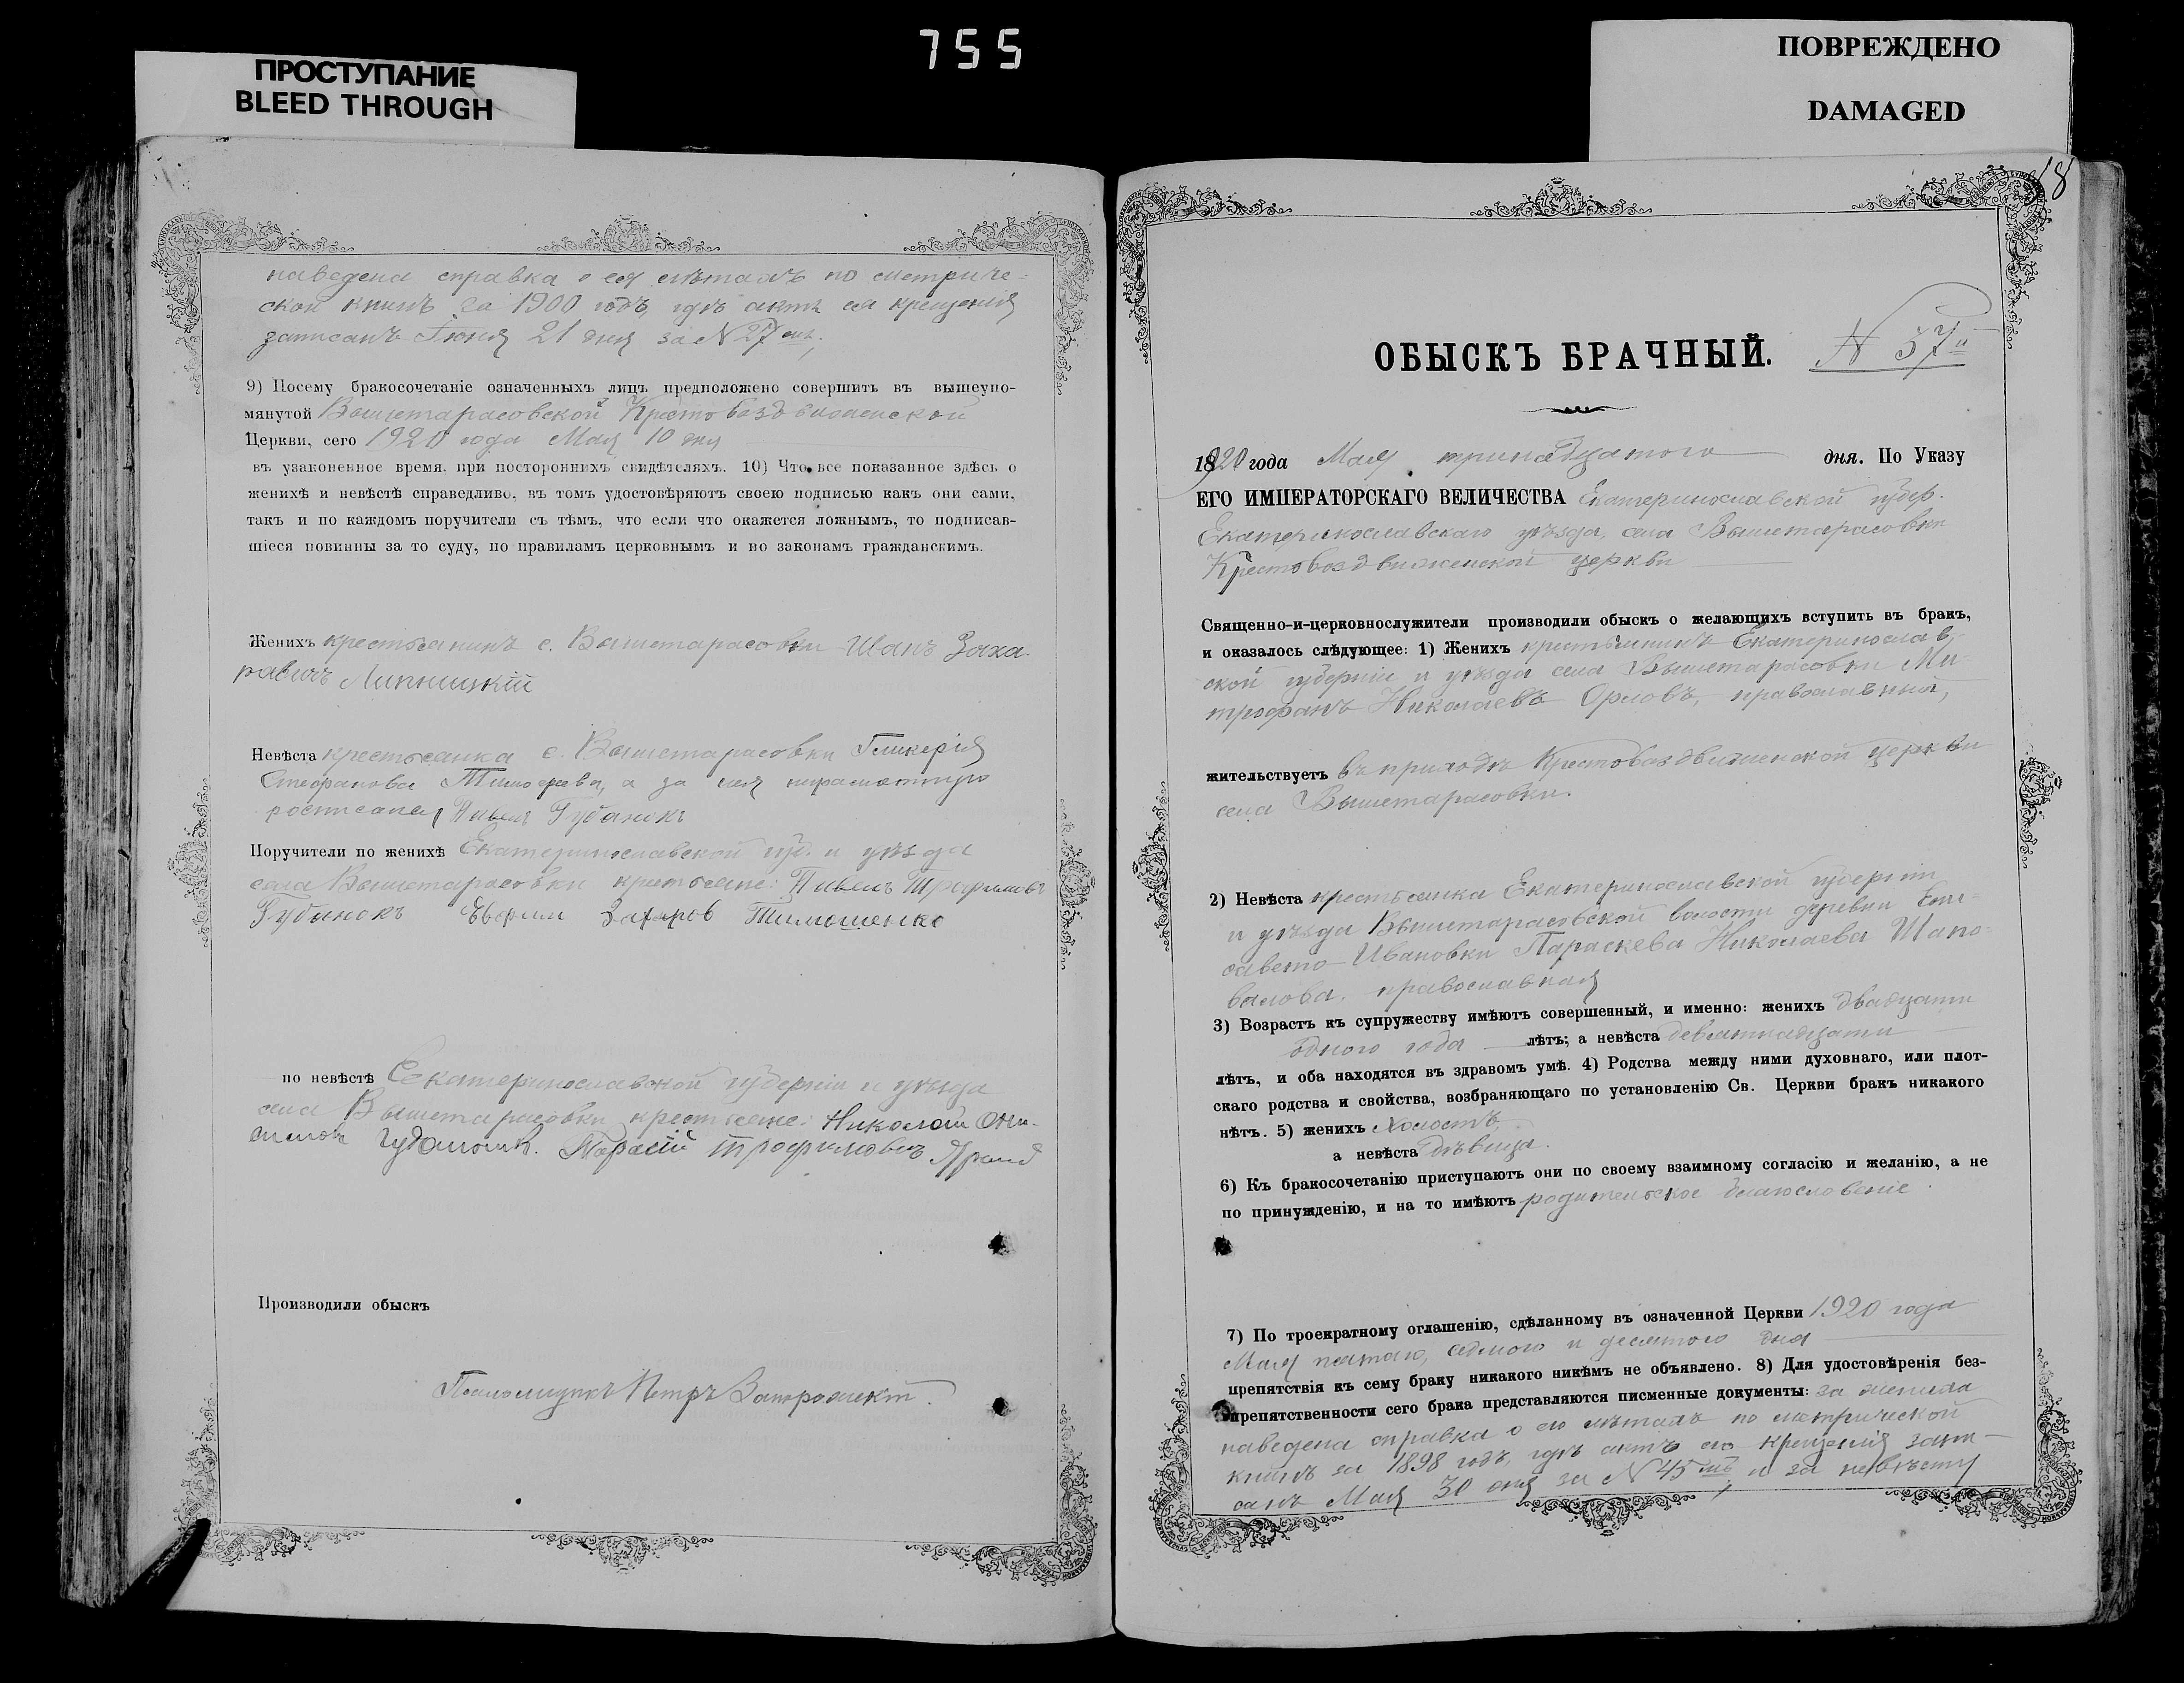 755
ПРОСТУПАНИЕ
BLEED THROUGH
ПОВРЕЖДЕНО
DAMAGED
наведена справка о ея лѣтахъ по метриче-
ской книгѣ за 1900 годъ, гдѣ актъ ея крещенія
записанъ Іюня 21 дня за N 27 мъ;
9) Посему бракосочетаніе означенныхъ лицъ предположено совершить въ вышеупо-
мянутой Вышетарасовской Крестовоздвиженской
Церкви, сего 1920 года Мая 10 дня
въ узаконенное время, при постороннихъ свидѣтеляхъ. 10) Что все показанное здѣсь о
женихѣ и невѣстѣ справедливо, въ томъ удостовѣряютъ своею подписью какъ они сами,
такъ и по каждомъ поручители съ тѣмъ, что если что окажется ложнымъ, то подписав-
шіеся повинны за то суду, по правиламъ церковнымъ и по законамъ гражданскимъ.
Женихъ крестьянинъ с. Вышетарасовки Иванъ Заха-
ровичъ Липницкій
Невѣста крестьянка с. Вышетарасовки Гликерія
Стефанова а за нея неграмотную
Павелъ Губанокъ
Поручители по женихѣ Екатеринославской губ. и уѣзда
села Вышетарасовки крестьяне: Павелъ
Губанокъ Евфим Захаров Тимошенко
по невѣстѣ Екатеринославской губерніи и уѣзда
села Вышетарасовки крестьяне: Николай
Тарасій Трофимовичъ
Производили обыскъ
Псаломщикъ Петръ
18
ОБЫСКЪ БРАЧНЫЙ.
N 37 й
1920 года Мая тринадцатого дня. По Указу
ЕГО ИМПЕРАТОРСКАГО ВЕЛИЧЕСТВА Екатеринославской губер.
Екатеринославскаго уѣзда, села Вышетарасовки
Крестовоздвиженской церкви
Священно-и-церковнослужители производили обыскъ о желающихъ вступить въ бракъ,
и оказалось слѣдующее: 1) Женихъ крестьянинъ Екатеринослав-
ской губерніи и уѣзда села Вышетарасовки Ми-
трофанъ Николаевъ Орловъ, православный,
жительствуетъ въ приходѣ Крестовоздвиженской церкви
села Вышетарасовки.
2) Невѣста крестьянка Екатеринославской губерніи
и уѣзда Вышетарасовской волости деревни Ели-
савето-Ивановки Параскева Николаева Шапо-
валова, православная
3) Возрастъ къ супружеству имѣютъ совершенный, и именно: женихъ двадцати
одного года лѣтъ; а невѣста девятнадцати
лѣтъ, и оба находятся въ здравомъ умѣ. 4) Родства между ними духовнаго, или плот-
скаго родства и свойства, возбраняющаго по установленію Св. Церкви бракъ никакого
нѣтъ. 5) женихъ холостъ,
а невѣста дѣвица.
6) Къ бракосочетанію приступаютъ они по своему взаимному согласію и желанію, а не
по принужденію, и на то имѣютъ родительское благословеніе.
7) По троекратному оглашенію, сдѣланному въ означенной Церкви 1920 года
Мая пятаго, седмого и десятого дня
препятствія къ сему браку никакого никѣмъ не объявлено. 8) Для удостовѣренія без-
препятственности сего брака представляются писменные документы: за жениха
наведена справка о его лѣтахъ по метрической
книгѣ за 1898 годъ, гдѣ актъ его крещенія запи-
санъ Мая 30 дня за N 45 мъ, и за невѣсту